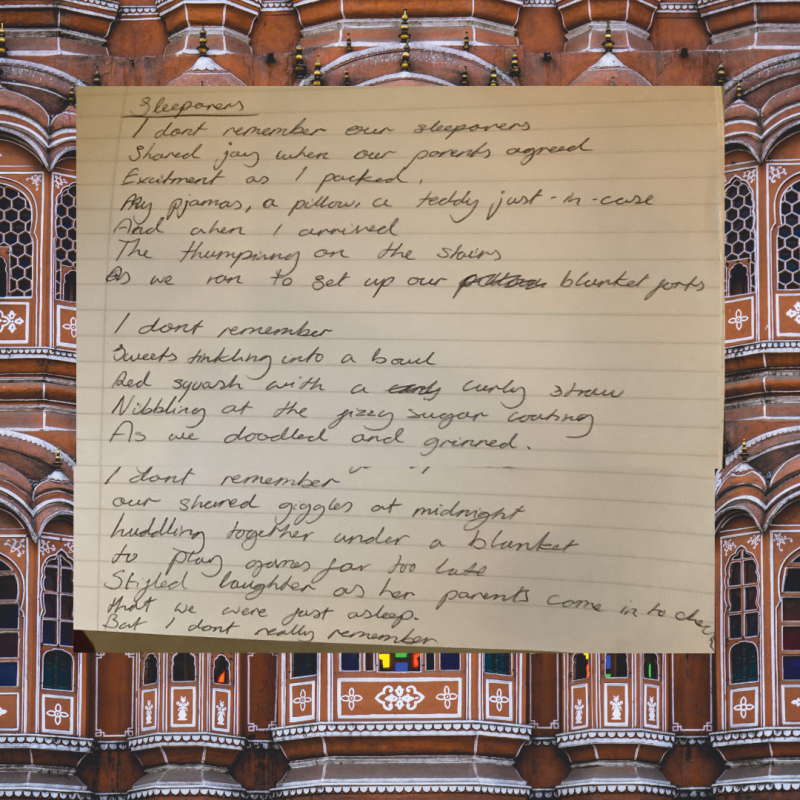 Sleepovers
I dont remember our sleepovers
Shared joy when our parents agreed
Excitment as I packed.
My pjamas, a pillow, a teddy just-in-case
And when I arrived
The thumping on the stairs
As we ran to set up our blanket forts
I dont remember
Sweets tinkling into a bowl
Red squash with a curly straw
Nibbling at the fizzy sugar coating
As we doodled and grinned.
I dont remember
our shared giggles at midnight
huddling together under a blanket
to play games far too late
Stifled laughter as her parents come in to check
that we were just asleep.
But I dont really remember